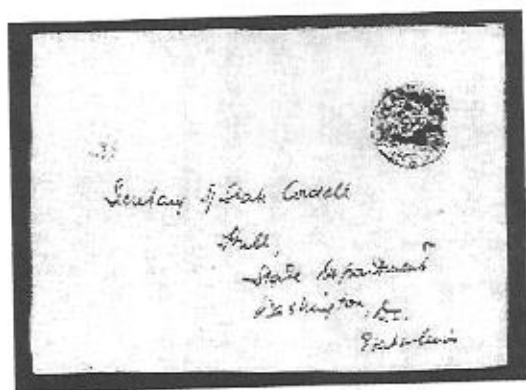 Secretary of State Cordell
Hull,
State Department
Washington, D.C.